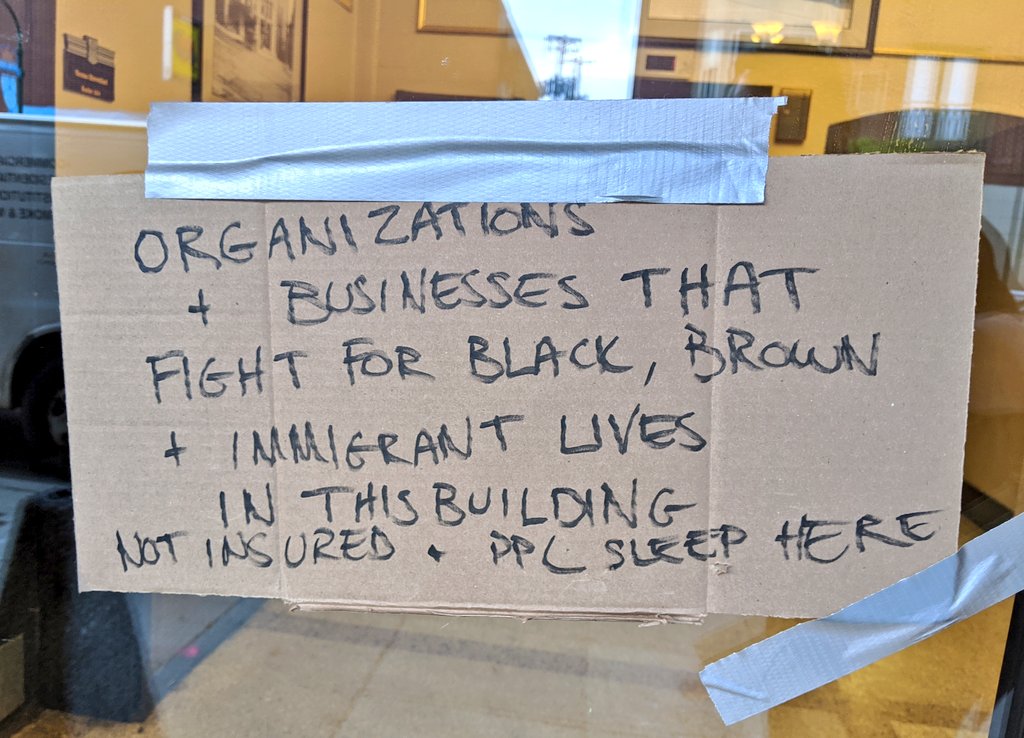 ORGANIZATIONS
+ BUSINESSES THAT
FIGHT FOR BLACK, BROWN
+ IMMIGRANT LIVES
IN THIS BUILDING
NOT INSURED • PPL SLEEP HERE